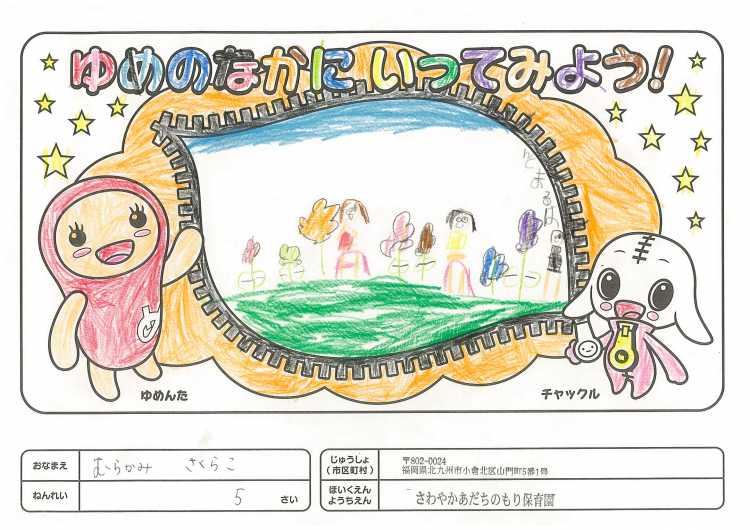 ゆめのなかに いってみよう!
ゆめんた
チャックル
おなまえ むらかみ さくらこ
ねんれい 5 さい
じゅうしょ
(市区町村)
〒802-0024
福岡県北九州市小倉北区山門町5番1号
ほいくえん
ようちえん
さわやかあだちのもり保育園